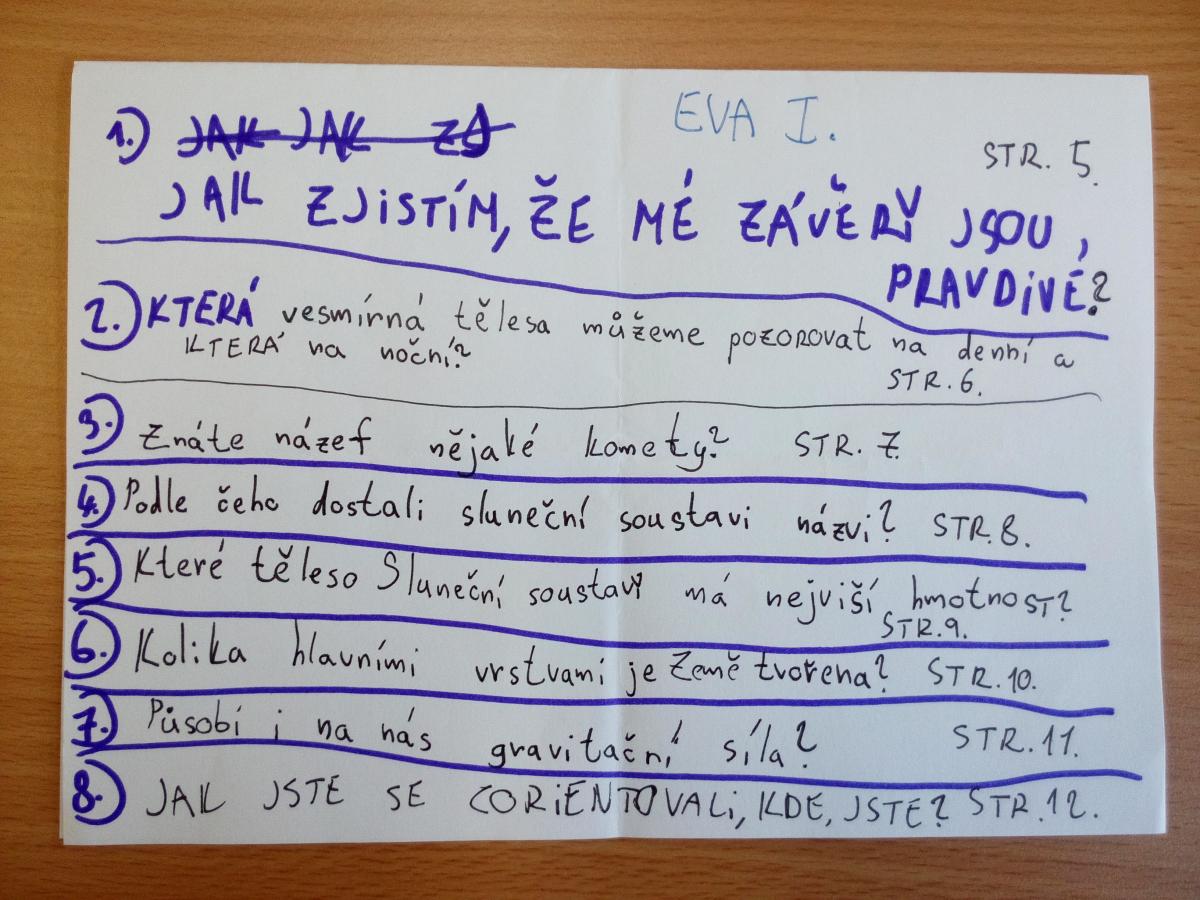 1.) JAK JAK ZA
EVA I.
STR. 5.
JAK ZJiSTÍM, ŽE MÉ ZÁVĚRY JSOU,
PRAVDiVÉ?
2.) KTERÁ vesmírná tělesa můžeme pozorovat na denní a
KTERÁ na noční?
STR. 6.
3.) Znáte názef nějaké komety? STR. 7.
4.) Podle čeho dostali sluneční soustavi názvi? STR. 8.
5.) Které těleso Sluneční soustavy má nejviší hmotnoST?
STR. 9.
6.) Kolika hlavními vrstvami je Země tvořena? STR. 10.
7.) Působí i na nás gravitační síla? STR. 11.
8.) JAK JSTE SE ZORiENTOVALi, KDE, JSTE? STR. 12.